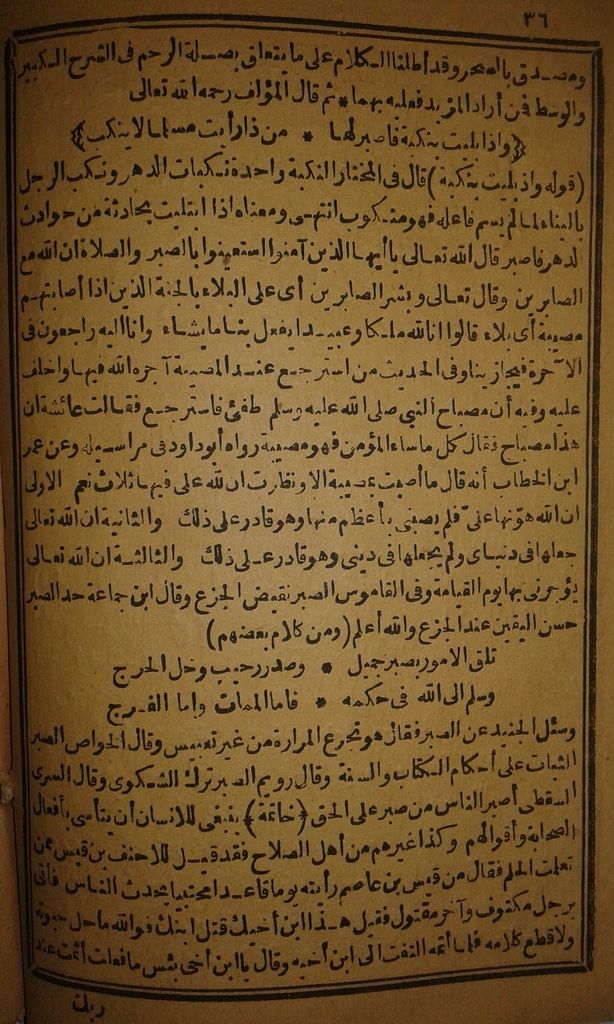 ٣٦
ومصدق بالسحر وقد أطلنا الكلام على ما يتعلق بصلة الرحم فى الشرح الكبير
والوسط فمن أراد المزيد فعليه بهما * ثم قال المؤلف رحمه الله تعالى
﴿واذا بليت بنكبة فاصبر لها * من ذا رأيت مسلما لا ينكب﴾
(قوله واذ بليت بنكبة) قال فى المختار النكبة واحدة نكبات الدهر ونكب الرجل
بالبناء لما لم يسم فاعله فهو منكوب انتهى ومعناه اذا ابتليت بحادثة من حوادث
لدهر فاصبر قال الله تعالى يا أيها الذين آمنوا استعينوا بالصبر والصلاة ان الله مع
الصابرين وقال تعالى وبشر الصابرين أى على البلاء بالجنة الذين اذا أصابتهم
مصيبة أى بلاء قالوا انا لله ملكا وعبيدا يفعل بنا ما يشاء وانا اليه راجعون فى
الآخرة فيجازينا وفى الحديث من استرجع عند المصيبة آجره الله فيها واخلف
عليه وفيه أن مصباح النبي صلى الله عليه وسلم طفئ فاسترجع فقالت عائشة ان
هذا مصباح فقال كل ما ساء المؤمن فهو مصيبة رواه أبو داود فى مراسيله وعن عمر
ابن الخطاب أنه قال ما أصبت بمصيبة الا ونظرت ان لله على فيها ثلاث نعم الاولى
ان الله هوّنها علىّ فلم يصبنى بأعظم منها وهو قادر على ذلك والثانية ان الله تعالى
جعلها فى دنياى ولم يجعلها فى دينى وهو قادر على ذلك والثالثة ان الله تعالى
يؤجرنى بها يوم القيامة وفى القاموس الصبر نقيض الجزع وقال ابن جماعة حد الصبر
حسن اليقين عند الجزع والله أعلم (ومن كلام بعضهم)
تلق الامور بصبر جميل * وصدر رحيب وخل الحرج
وسلم الى الله فى حكمه * فاما الممات واما الفرج
وسئل الجنيد عن الصبر فقال هو تجرع المرارة من غير تعبيس وقال الخواص الصبر
الثبات على أحكام الكتاب والسنة وقال رويم الصبر ترك الشكوى وقال السرى
السقطى أصبر الناس من صبر على الحق ﴿خاتمة﴾ ينبغى للانسان أن يتأسى بأفعال
الصحابة وأقوالهم وكذا غيرهم من أهل الصلاح فقد قيل للاحنف بن قيس ممن
تعلمت الحلم فقال من قيس بن عاصم رأيته يوما قاعدا محتبيا يحدث الناس فأتى
برجل مكتوف وآخر مقتول فقيل هذا ابن أخيك قتل ابنك فوالله ما حل حبوته
ولا قطع كلامه فلما أتمه التفت الى ابن أخيه وقال يا ابن أخى بئس ما فعلت أثمت عند
ربك